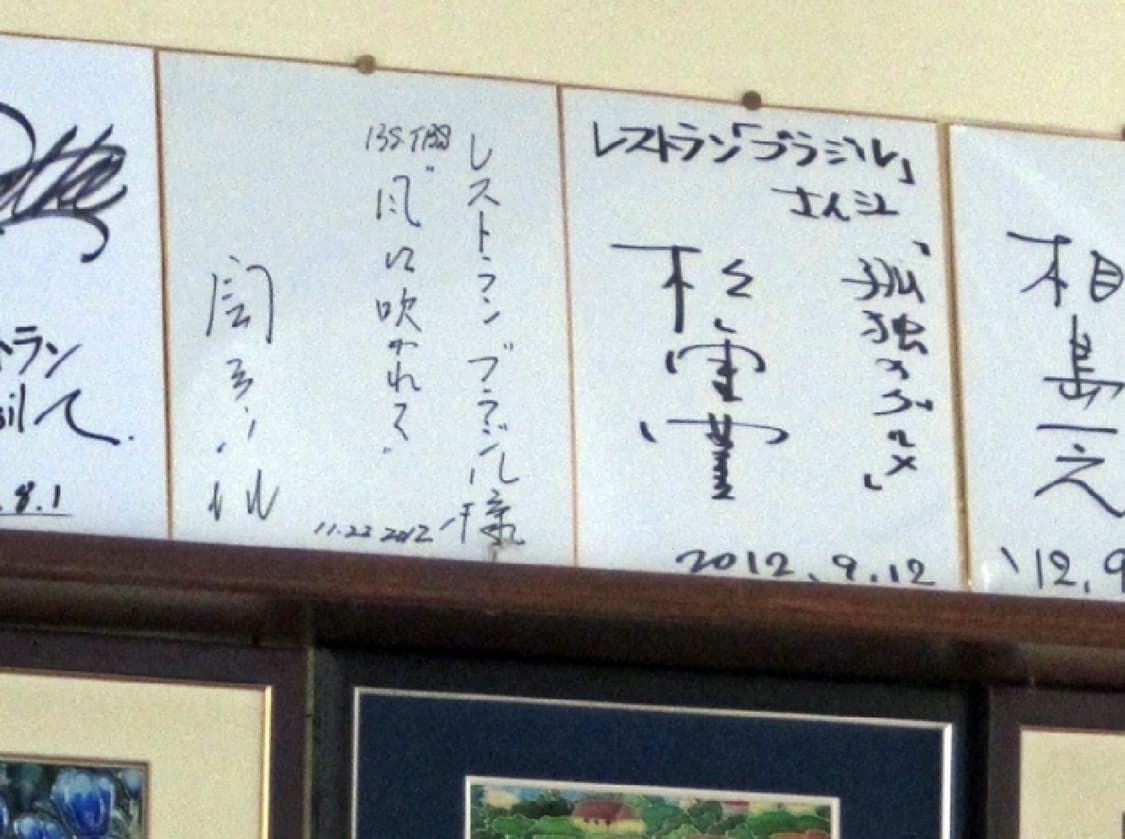 トラン
sil にて.
.8.1
レストラン ブラジル様
BS-TBS
"風に吹かれて"
11.22 2012
レストラン「ブラジル」
さん江
「孤独のグルメ」
松重豊
2012.9.12
相島一之
'12.9